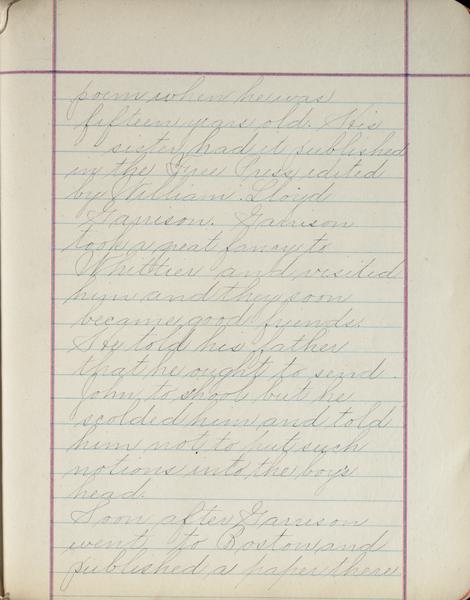 poem when he was
fifteen years old. His
sister had it published
in the Free Press edited
by William Lloyd
Garrison. Garrison
took a great fancy to
Whittier and visited
him and they soon
became good friends.
He told his father
that he ought to send
John to shool but he
scolded him and told
him not to put such
notions into the boys
head.
Soon after Garrison
went to Boston and
published a paper there